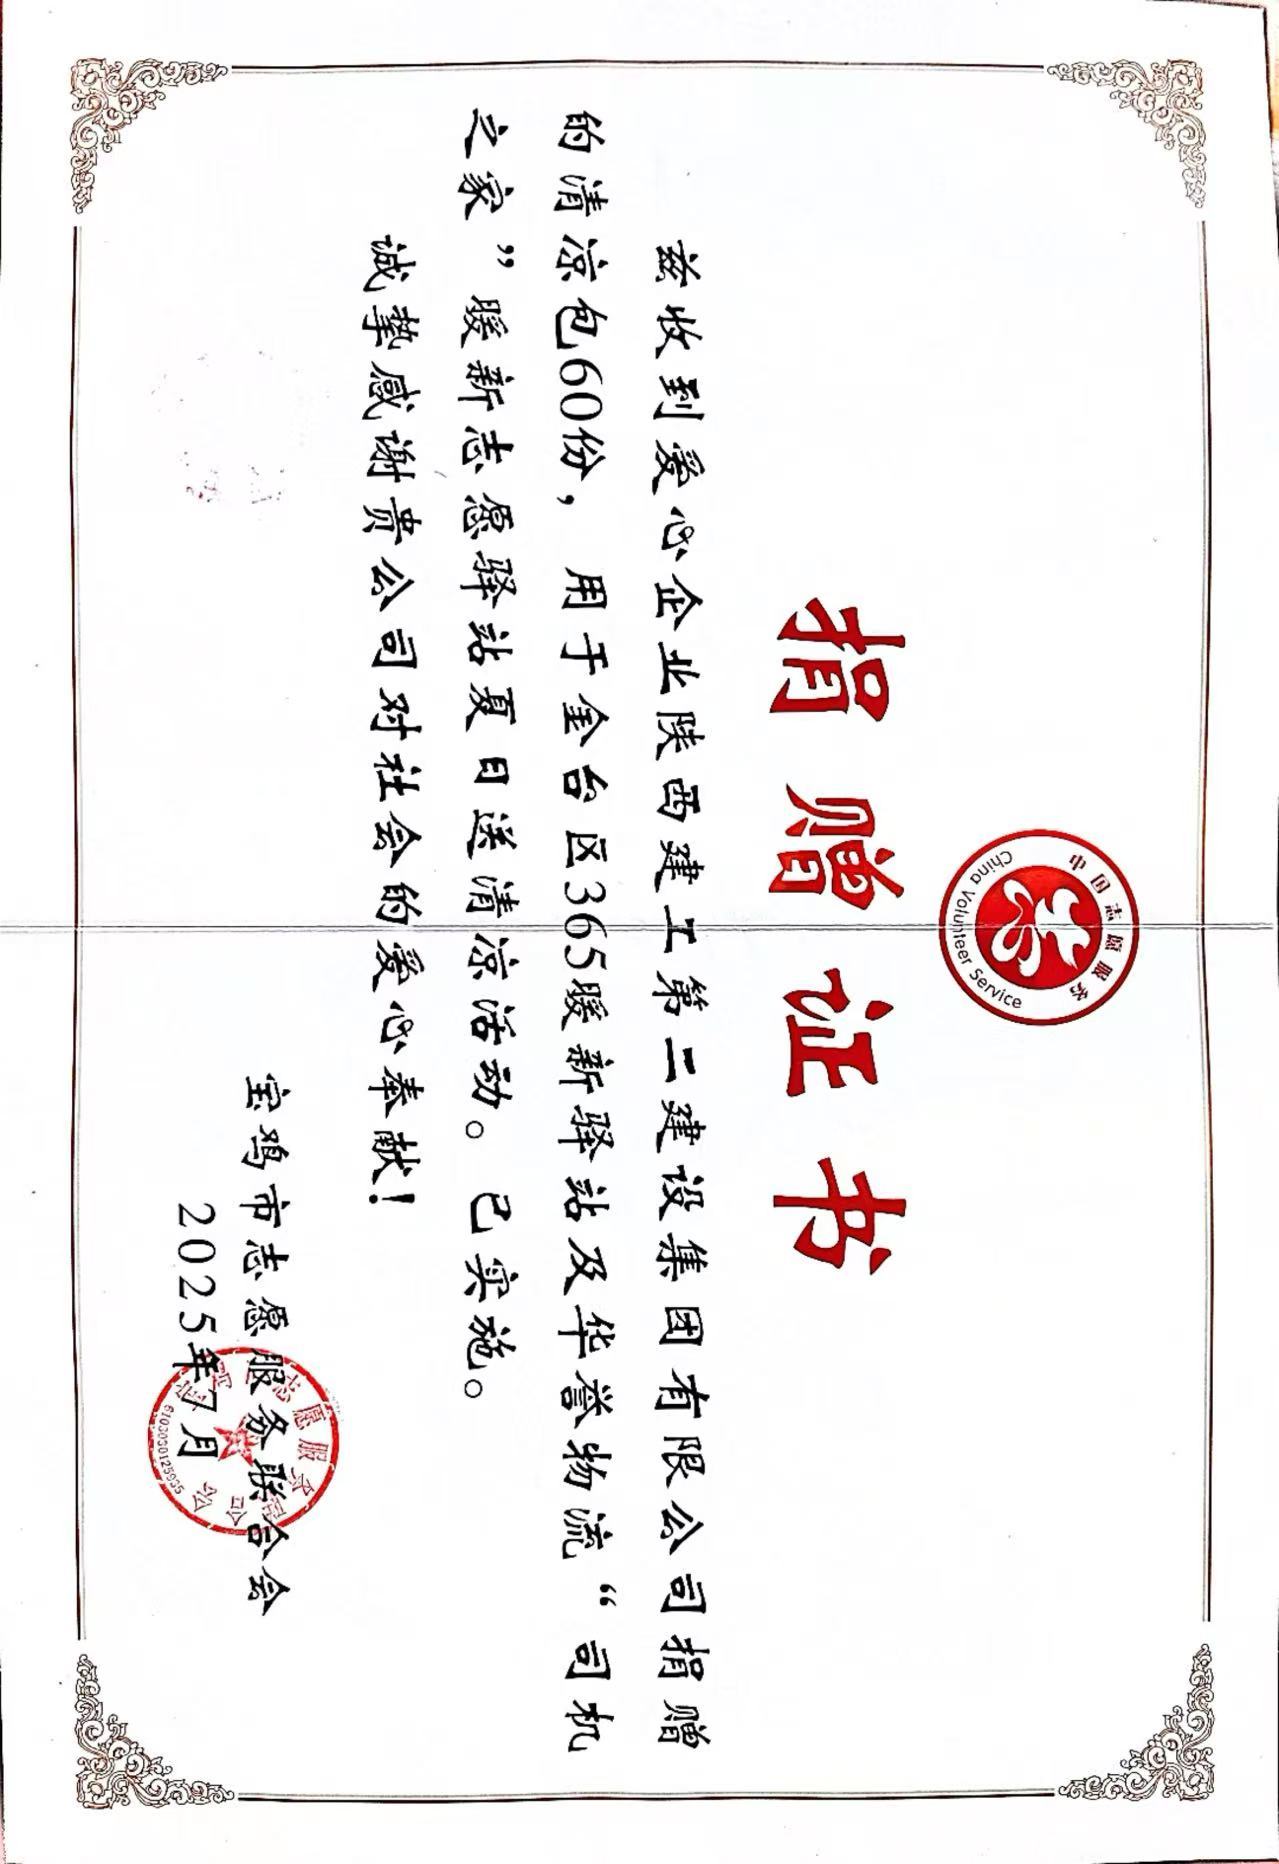 中国志愿服务
China Volunteer Service
捐赠证书
兹收到爱心企业陕西建工第二建设集团有限公司捐赠
的清凉包60份，用于金台区365暖新驿站及华誉物流“司机
之家”暖新志愿驿站夏日送清凉活动。已实施。
诚挚感谢贵公司对社会的爱心奉献！
宝鸡市志愿服务联合会
2025年7月
6103030125935